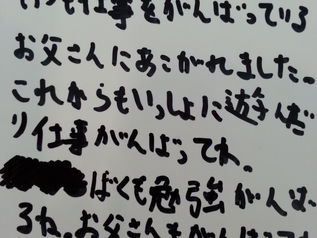 いつも仕事をがんばっている
お父さんにあこがれました。
これからもいっしょに遊んだ
り仕事がんばってね。
ぼくも勉強がんば
るね。お父さんもがんばって